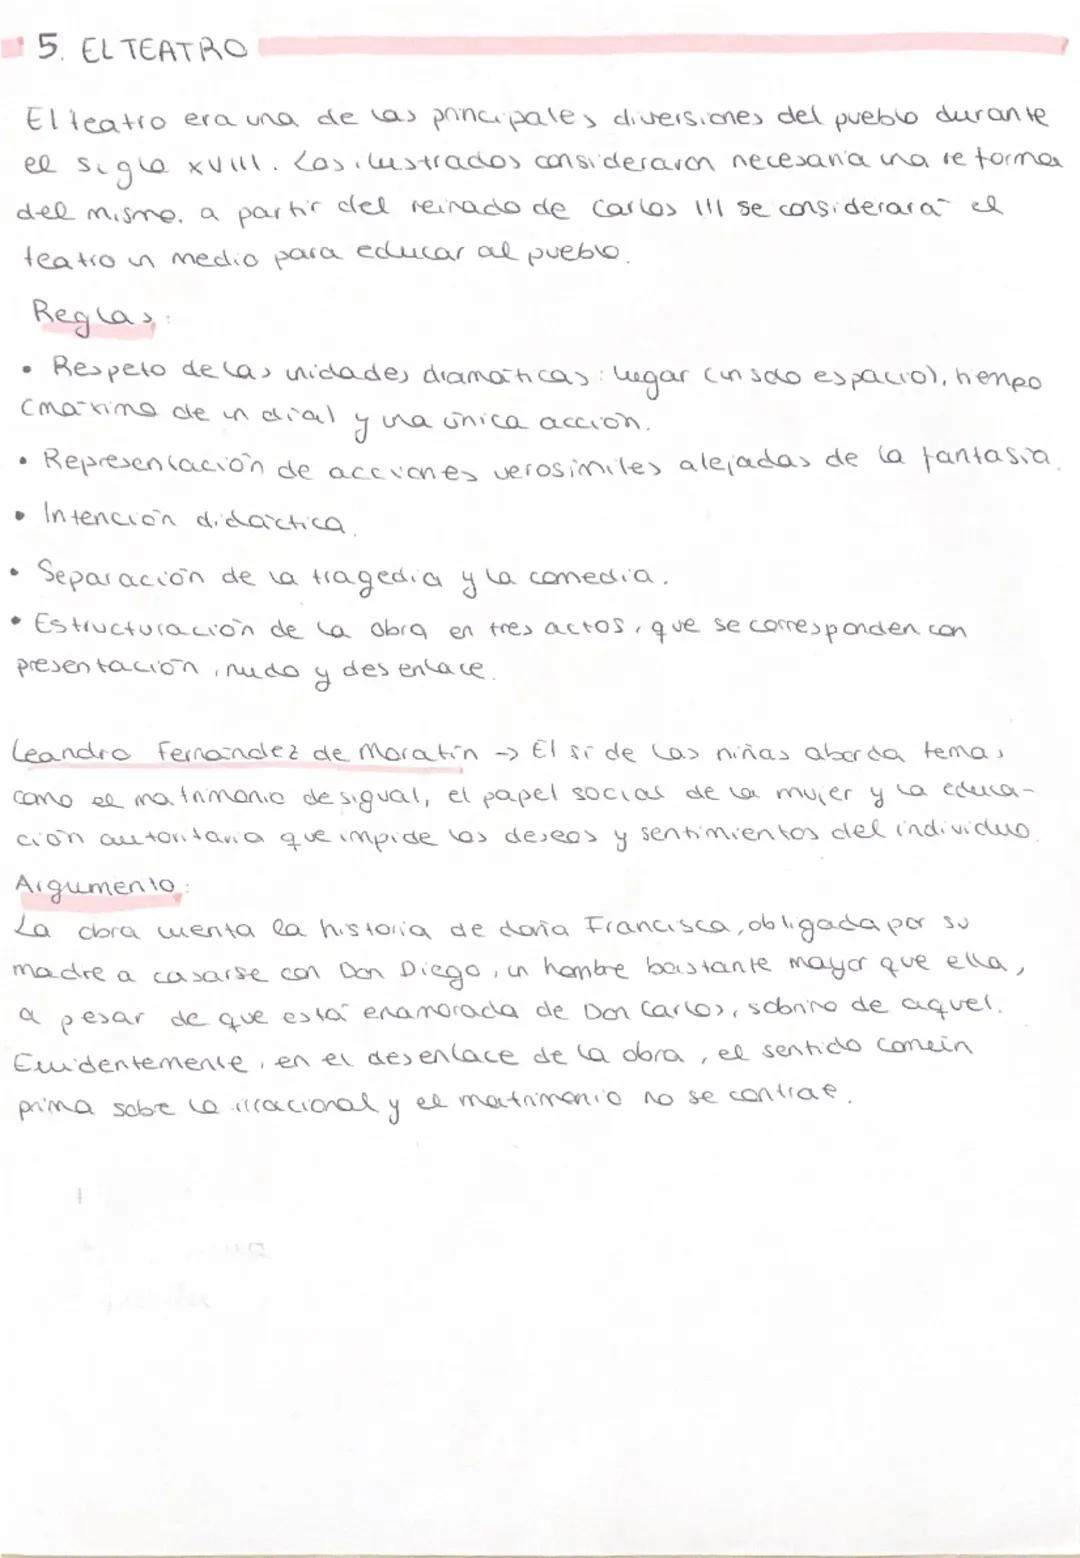 5. EL TEATRO
El teatro era una de las principales diversiones del pueblo durante
el siglo XVIII. Los ilustrados consideraron necesaria una reforma
del mismo. a partir del reinado de Carlos III se considerará el
teatro un medio para educar al pueblo.
Reglas:
• Respeto de las unidades dramáticas: lugar (un solo espacio), tiempo
(máximo de un día) y una única acción.
• Representación de acciones verosímiles alejadas de la fantasía.
• Intención didáctica.
• Separación de la tragedia y la comedia.
• Estructuración de la obra en tres actos, que se corresponden con
presentación, nudo y desenlace.
Leandro Fernández de Moratín -> El sí de las niñas aborda temas
como el matrimonio desigual, el papel social de la mujer y la educa-
ción autoritaria que impide los deseos y sentimientos del individuo.
Argumento:
La obra cuenta la historia de doña Francisca, obligada por su
madre a casarse con Don Diego, un hombre bastante mayor que ella,
a pesar de que está enamorada de Don Carlos, sobrino de aquel.
Evidentemente, en el desenlace de la obra, el sentido común
prima sobre lo irracional y el matrimonio no se contrae.